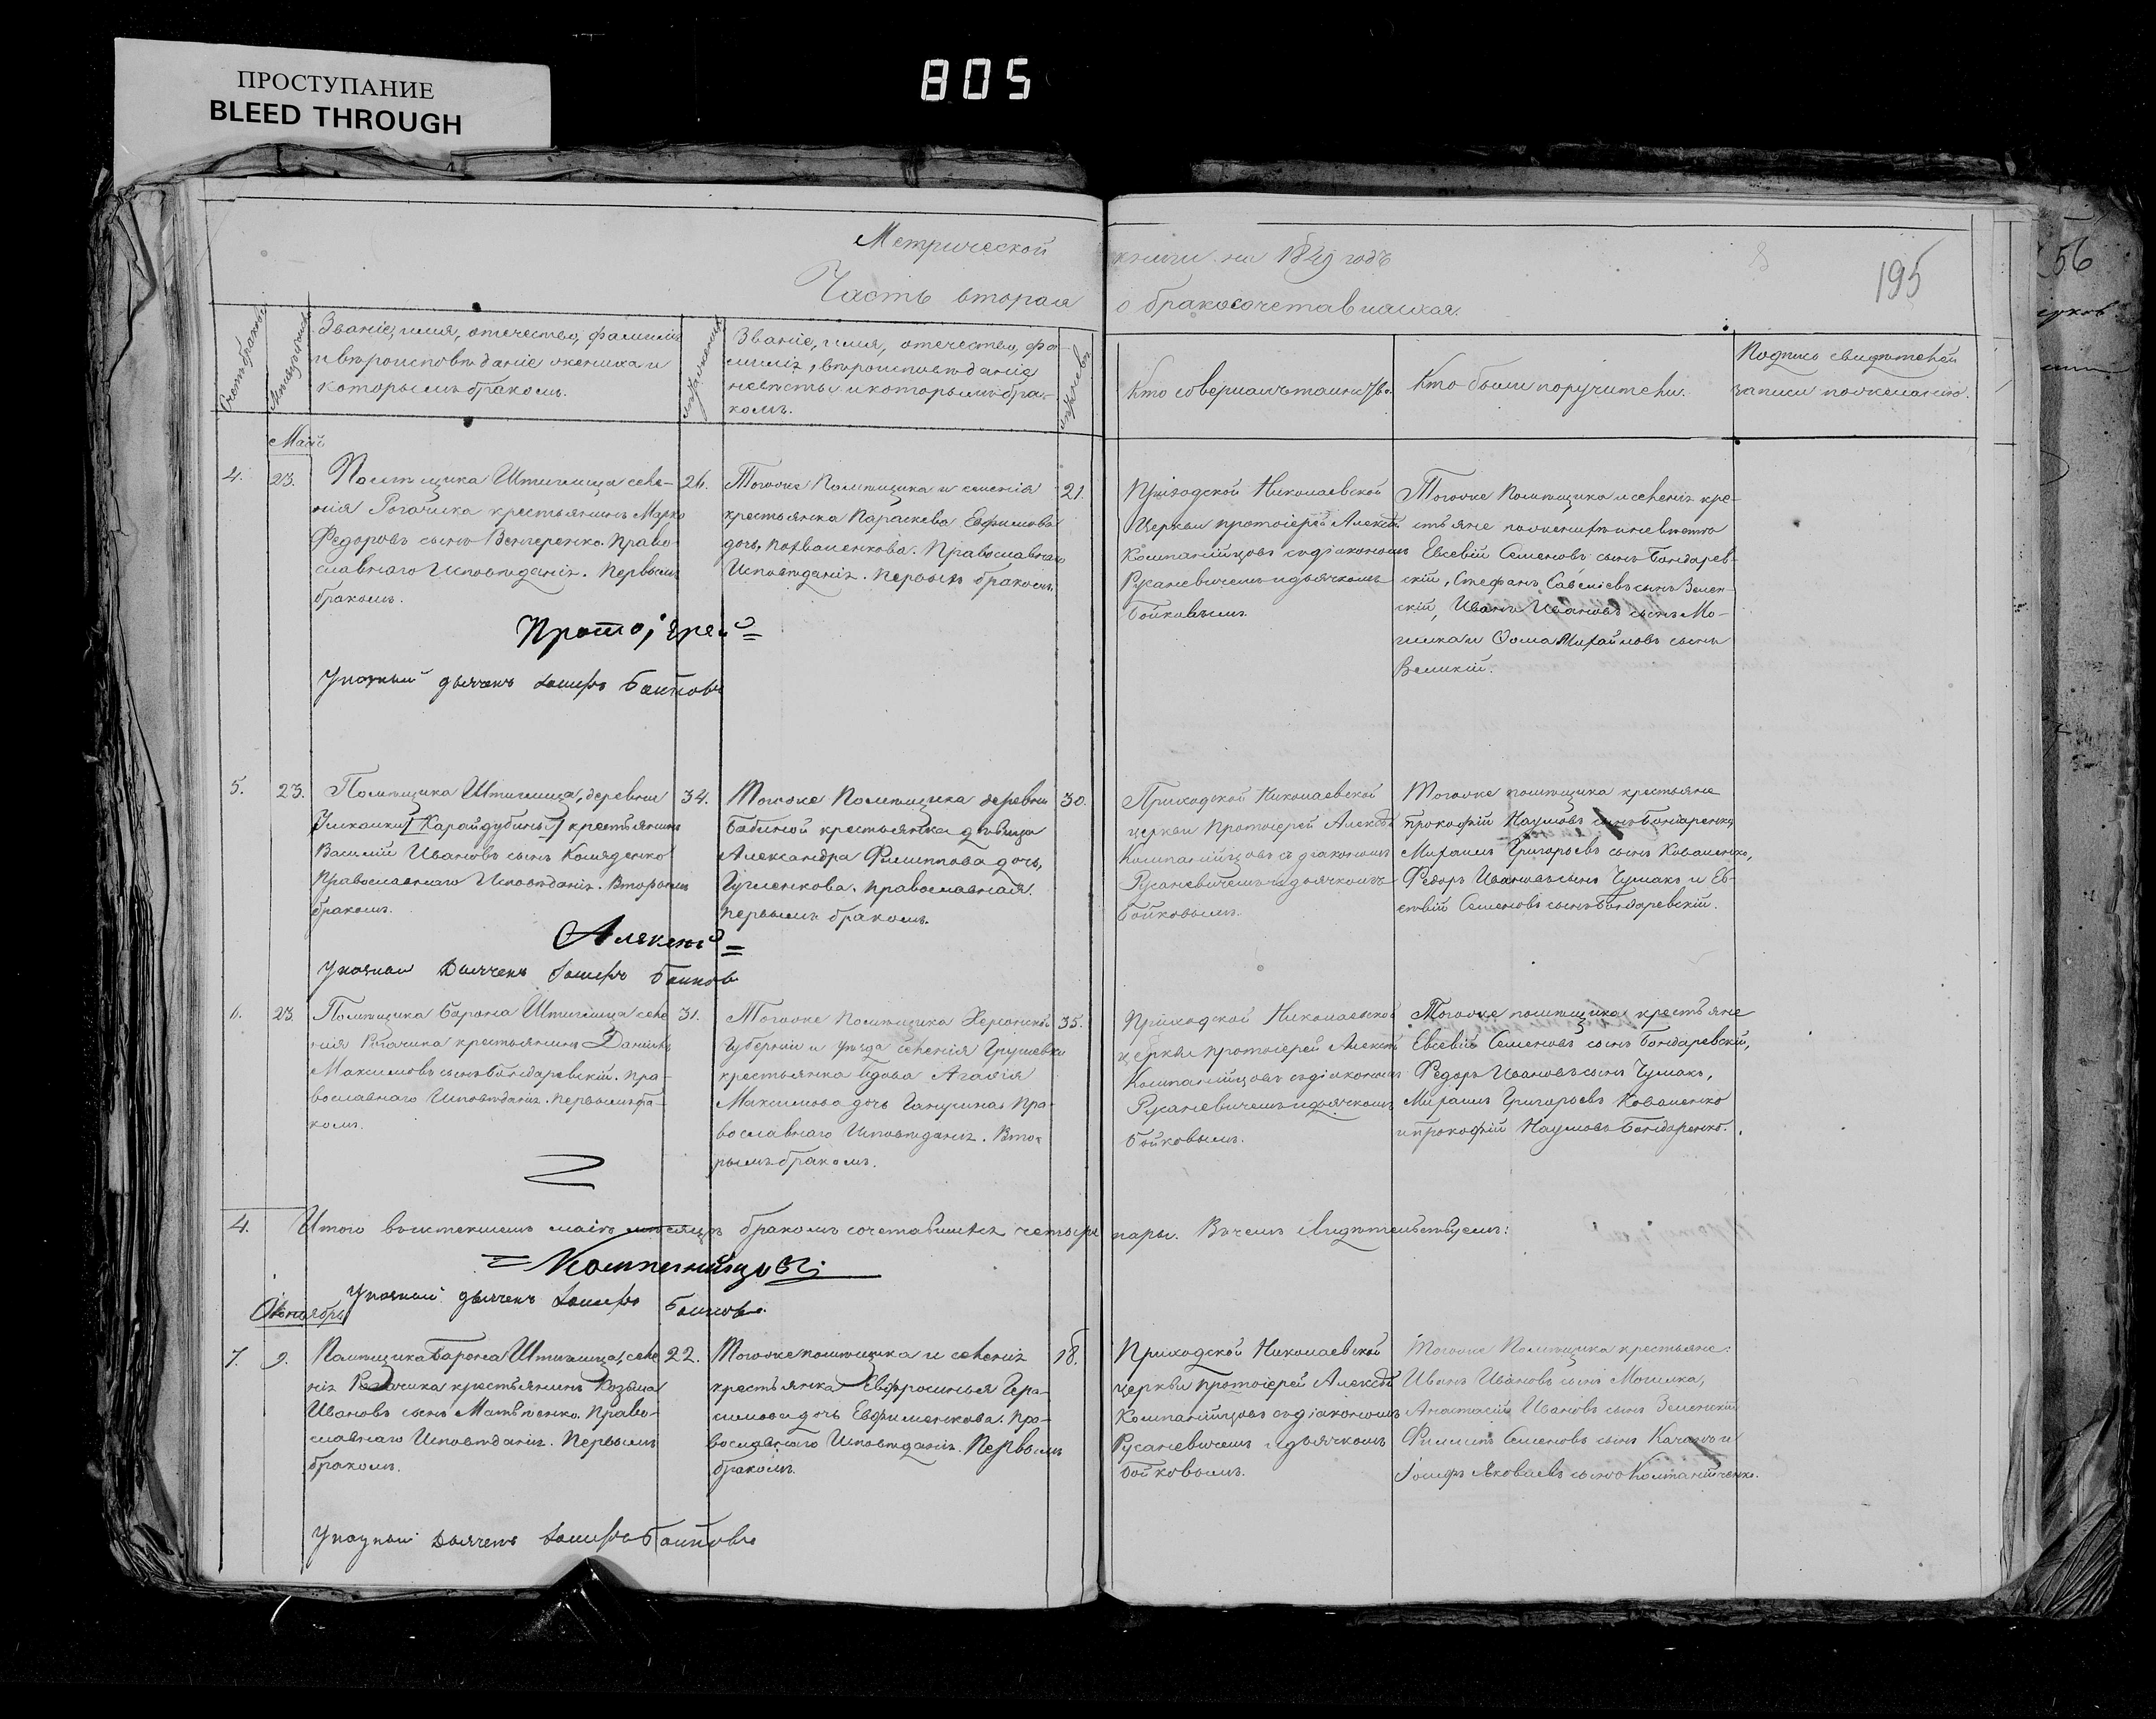 ПРОСТУПАНИЕ
BLEED THROUGH
805
Метрической книги на 1849 годъ
195
56
Часть вторая о бракосочетавшихся.
Счетъ браковъ
Званіе, имя, отечество, фамилія
и вѣроисповѣданіе жениха и
которымъ бракомъ.
Лѣта жениха
Званіе, имя, отечество, фа-
милія, вѣроисповѣданіе
невѣсты и которымъ бра-
комъ.
Кто совершалъ таинство.
Кто были поручители.
Подписи свидѣтелей
записи по желанію.
Май
4.
23.
Помѣщика Штиглица селе-
нія Рогачика крестьянинъ Марко
Федоровъ сынъ Венгеренко. Право-
славнаго Исповѣданія. Первымъ
бракомъ.
26.
Тогоже Помѣщика и селенія
крестьянка Параскева Евфимова
дочь, Православнаго
Исповѣданія. Первымъ бракомъ.
21.
Приходской Николаевской
Церкви протоіерей Алексѣй
Компанійцовъ съ діакономъ
Русаневичемъ и дьячкомъ
Бойковымъ.
Тогоже Помѣщика и селенія кре-
стьяне по женихѣ и невѣстѣ
Евсевій Семеновъ сынъ Бондарев-
скій, Стефанъ Савеліевъ сынъ Зелен-
скій, Иванъ Ивановъ сынъ Мо-
гилка и Ѳома Михайловъ сынъ
Великій.
Протоіерей
Указный дьячекъ Іосифъ Бойковъ
5.
23.
Помѣщика Штиглица, деревни
/Карайдубины/ крестьянинъ
Василій Ивановъ сынъ Коляденко
Православнаго Исповѣданія. Вторымъ
бракомъ.
34.
Тогоже Помѣщика деревни
Бабиной крестьянка дѣвица
Александра Филиппова дочь,
Православная.
Первымъ бракомъ.
30.
Приходской Николаевской
церкви Протоіерей Алексѣй
Компанійцовъ съ діакономъ
Русаневичемъ и дьячкомъ
Бойковымъ.
Тогоже помѣщика крестьяне
Прокофій Наумовъ сынъ Бондаренко,
Михаилъ Григорьевъ сынъ Коваленко,
Федоръ Ивановъ сынъ Чумакъ и Ев-
севій Семеновъ сынъ Бондаревскій.
Алексѣй
Указный Дьячекъ Іосифъ Бойковъ
6.
23.
Помѣщика Барона Штиглица селе
нія Рогачика крестьянинъ Даніилъ
Максимовъ сынъ Бондаревскій. Пра-
вославнаго Исповѣданія. Первымъ бра-
комъ.
31.
Тогоже Помѣщика Херсонской
Губерніи и уѣзда селенія Грушевки
крестьянка вдова Агафія
Максимова дочь Пра-
вославнаго Исповѣданія. Вто-
рымъ бракомъ.
35.
Приходской Николаевской
церкви протоіерей Алексѣй
Компанійцовъ съ діакономъ
Русаневичемъ и дьячкомъ
Бойковымъ.
Тогоже помѣщика крестьяне
Евсевій Семеновъ сынъ Бондаревскій,
Федоръ Ивановъ сынъ Чумакъ,
Михаилъ Григорьевъ Коваленко
и Прокофій Наумовъ Бондаренко.
4.
Итого въ истекшемъ маіѣ мѣсяцѣ бракомъ сочетавшихся четыре пары. Въ чемъ свидѣтельствуемъ:
Компанійцовъ
Указный дьячекъ Іосифъ Бойковъ.
Октябрь
7.
9.
Помѣщика Барона Штиглица, селе
нія Рогачика крестьянинъ Козьма
Ивановъ сынъ Матвѣенко. Право-
славнаго Исповѣданія. Первымъ
бракомъ.
22.
Тогоже помѣщика и селенія
крестьянка Евфросинья Гера-
симова дочь Евфименкова. Пра-
вославнаго Исповѣданія. Первымъ
бракомъ.
18.
Приходской Николаевской
церкви протоіерей Алексѣй
Компанійцовъ съ діакономъ
Русаневичемъ и дьячкомъ
Бойковымъ.
Тогоже Помѣщика крестьяне:
Иванъ Ивановъ сынъ Могилка,
Анастасій Ивановъ сынъ Зеленскій
Филиппъ Семеновъ сынъ и
Іосифъ Яковлевъ сынъ Компанійченко.
Указный Дьячекъ Іосифъ Бойковъ